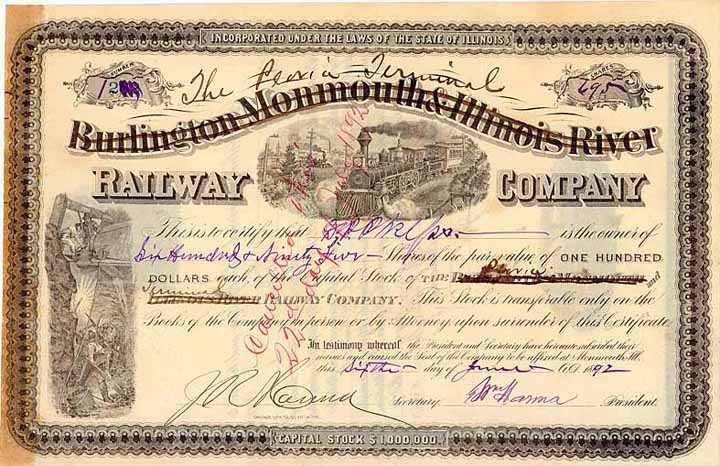 INCORPORATED UNDER THE LAWS OF THE STATE OF ILLINOIS
NUMBER
SHARES
695
The Peoria Terminal
Burlington Monmouth & Illinois River
RAILWAY COMPANY
This is to certify that is the owner of
Six Hundred & Ninety Five Shares of the par value of ONE HUNDRED
DOLLARS each, of the Capital Stock of THE Peoria and
Terminal
ILLINOIS RIVER RAILWAY COMPANY. This Stock is transferable only on the
Books of the Company in person or by Attorney upon surrender of this Certificate.
In testimony whereof the President and Secretary have hereunto subscribed their
names and caused the Seal of the Company to be affixed at Monmouth Ill.
this Sixth day of June A.D. 1892
Secretary. Wm Hanna President.
CAPITAL STOCK $1,000,000.
22nd day 1892